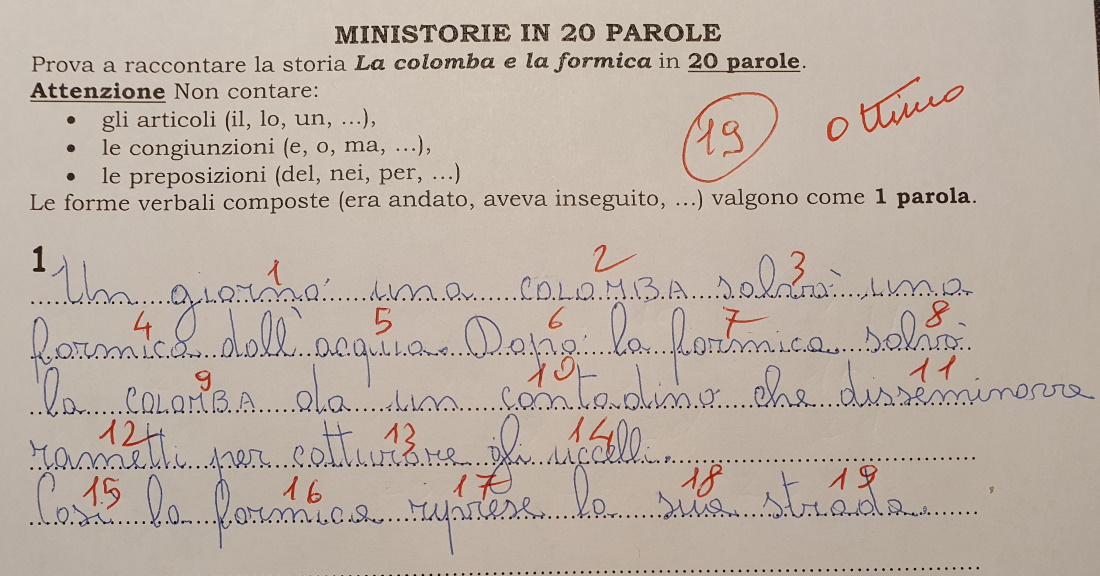 MINISTORIE IN 20 PAROLE
Prova a raccontare la storia La colomba e la formica in 20 parole.
Attenzione Non contare:
• gli articoli (il, lo, un, ...),
• le congiunzioni (e, o, ma, ...),
• le preposizioni (del, nei, per, ...)
19 ottimo
Le forme verbali composte (era andato, aveva inseguito, ...) valgono come 1 parola.
1 2 3
1 Un giorno una COLOMBA salvò una
4 5 6 7 8
formica dall'acqua. Dopo la formica salvò
9 10 11
la COLOMBA da un contadino che disseminava
12 13 14
rametti per catturare gli uccelli.
15 16 17 18 19
Così la formica riprese la sua strada.